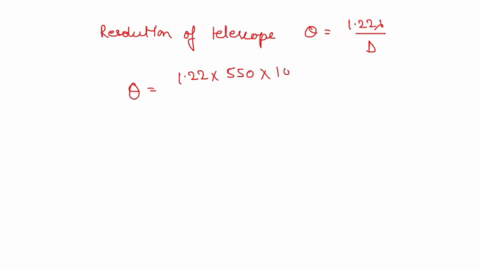 Resolution of telescope θ = 1.22λ / D
θ = 1.22 × 550 × 10